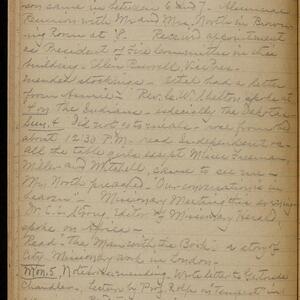 son came in between 6 and 7. Alumnae
Reunion with Mr and Mrs. North in Brown-
ing Room at 8. Received appointment
as President of Fire Committee in this
building. Ellen Burrell Vice Pres.
mended stockings. Ethel had a letter
from Annie. Rev. C. W. Shelton spoke at
4 on the Indians - especially the Dakotas.
Sun. 4. Did not go to meals - was from bed
about 12:30 P.M. read Independent &c.
all the table girls except Misses Freeman,
Miller and Mitchell, came to see me.
Mr. North preached. "Our conversation is in
heaven". Missionary Meeting this evening
Dr. E. E. Strong, Editor of Missionary Herald,
spoke on Africa.
Read "The Man with the Book", a story of
City Missionary work in London.
Mon. 5. Note &c mending. Wrote letter to Gertrude
Chandler. Lecture by Prof. Rolfe on "Tempest" in